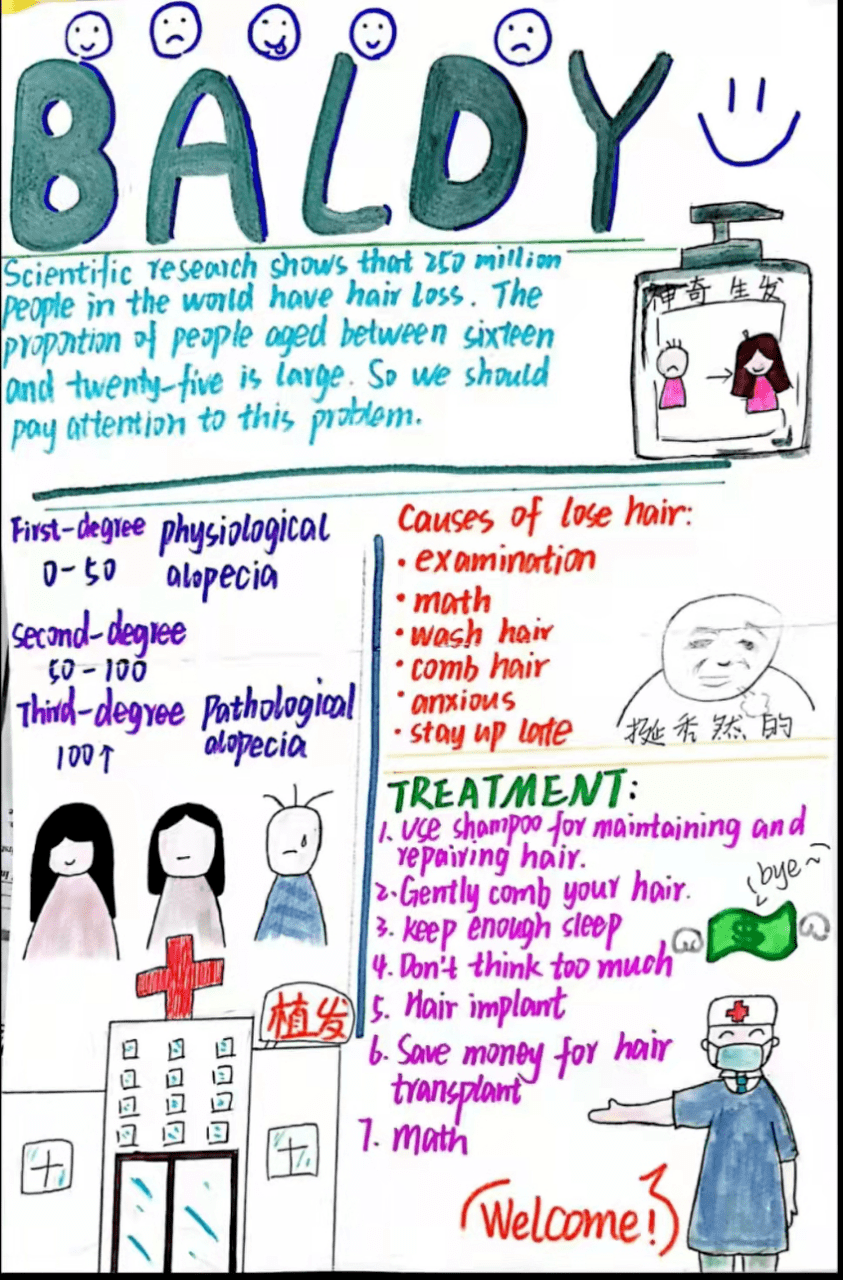 BALDY
Scientific research shows that 250 million
people in the world have hair loss. The
proportion of people aged between sixteen
and twenty-five is large. So we should
pay attention to this problem.
神奇生发
First-degree physiological
0-50 alopecia
second-degree
50-100
Third-degree Pathological
100↑ alopecia
植发
Causes of lose hair:
• examination
• math
• wash hair
• comb hair
• anxious
• stay up late
挺秃然的
TREATMENT:
1. Use shampoo for maintaining and
repairing hair.
2. Gently comb your hair.
3. keep enough sleep
4. Don't think too much
5. Hair implant
6. Save money for hair
transplant
7. math
bye~
$
Welcome!